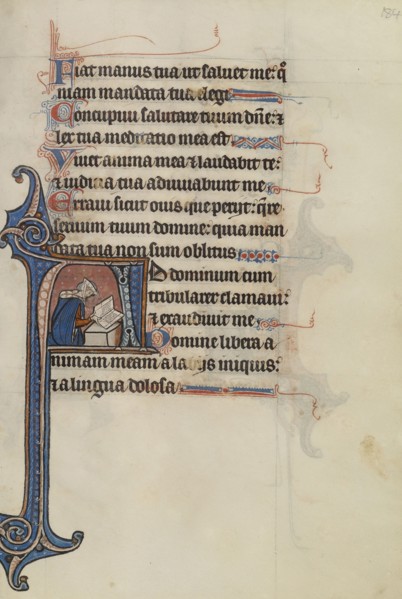 184
Fiat manus tua ut saluet me: qm̄
niam mandata tua elegi
Concupiui salutare tuum dñe: ⁊
lex tua meditatio mea est
Viuet anima mea ⁊ laudabit te:
⁊ iudicia tua adiuuabunt me
Erraui sicut ouis que perijt: q̄re
seruum tuum domine: quia man
data tua non sum oblitus
Ad dominum cum
tribularer clamaui:
⁊ exaudiuit me
Domine libera a
nimam meam a labijs iniquis:
⁊ a lingua dolosa